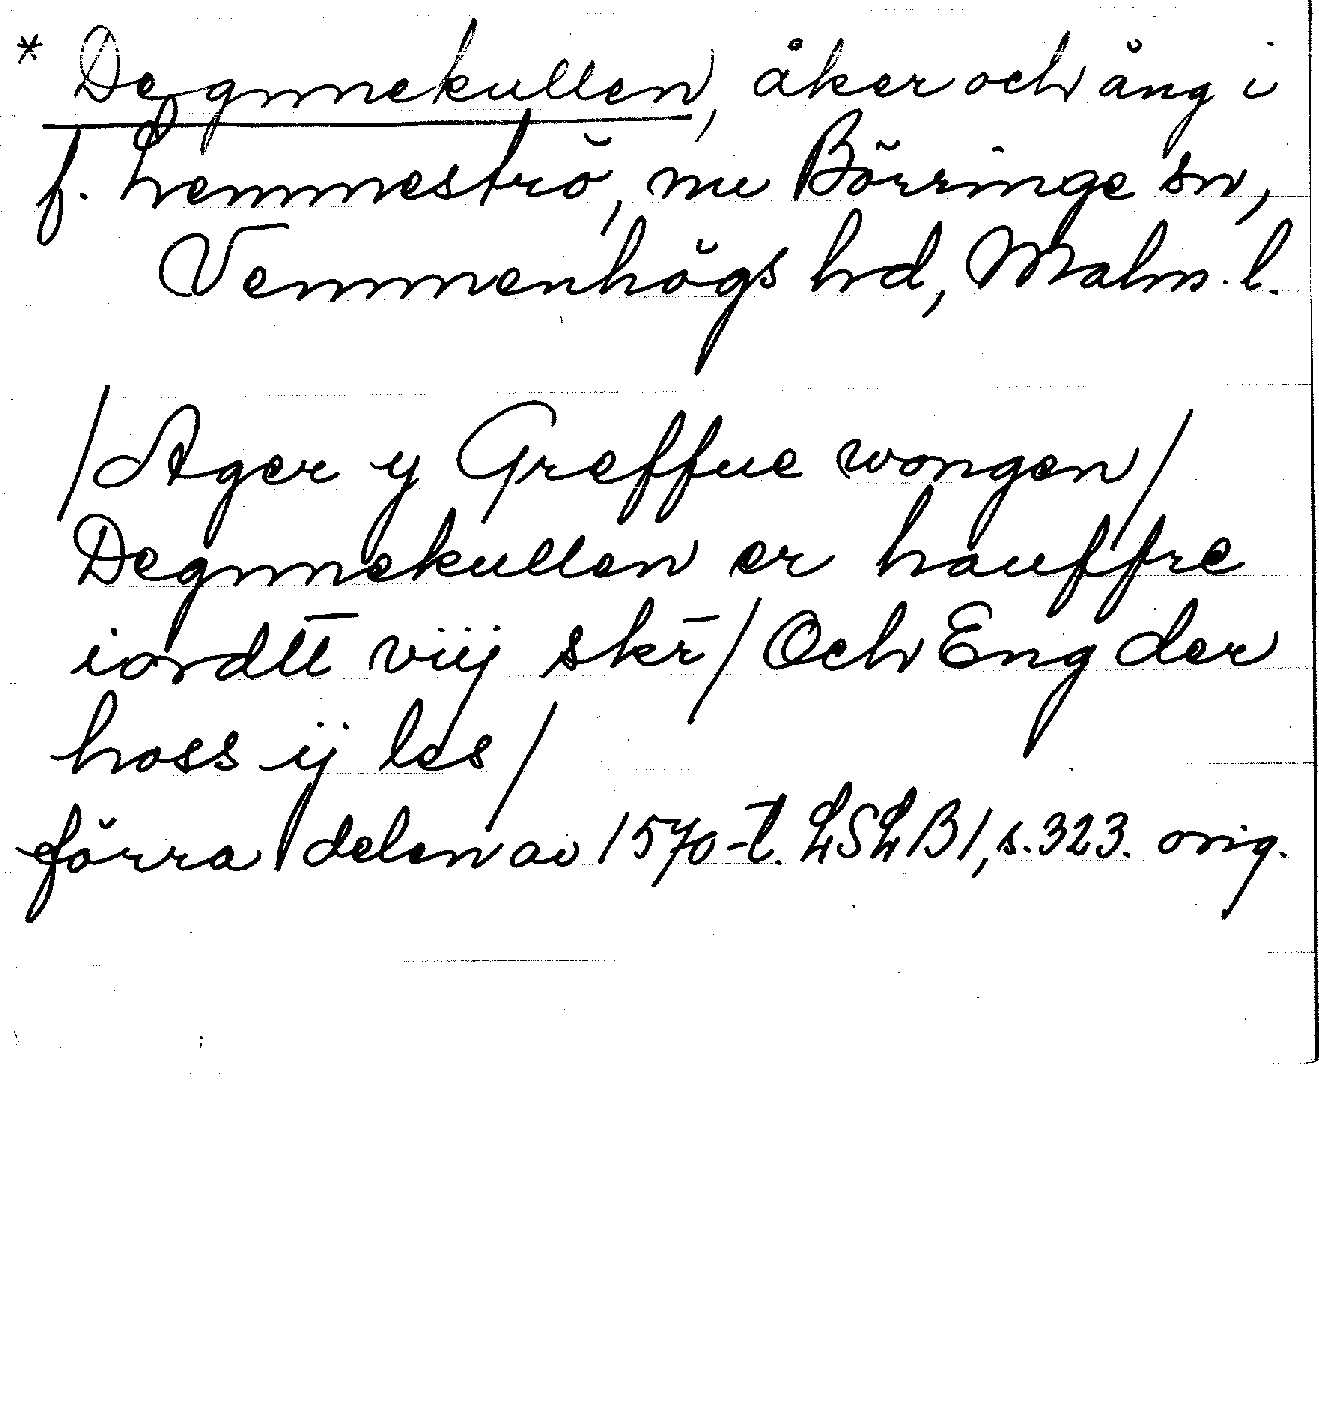 * Degnnekullen, åker och äng i
f. Lemmeströ, nu Börringe sn,
Vemmenhögs hd, Malm. l.
/Ager y Greffue wongen/
Degnnekullen er hauffre
iordtt viij skr̄/ Och Eng der
hoss ij les/
förra delen av 1570-t. LSLB1, s. 323. orig.